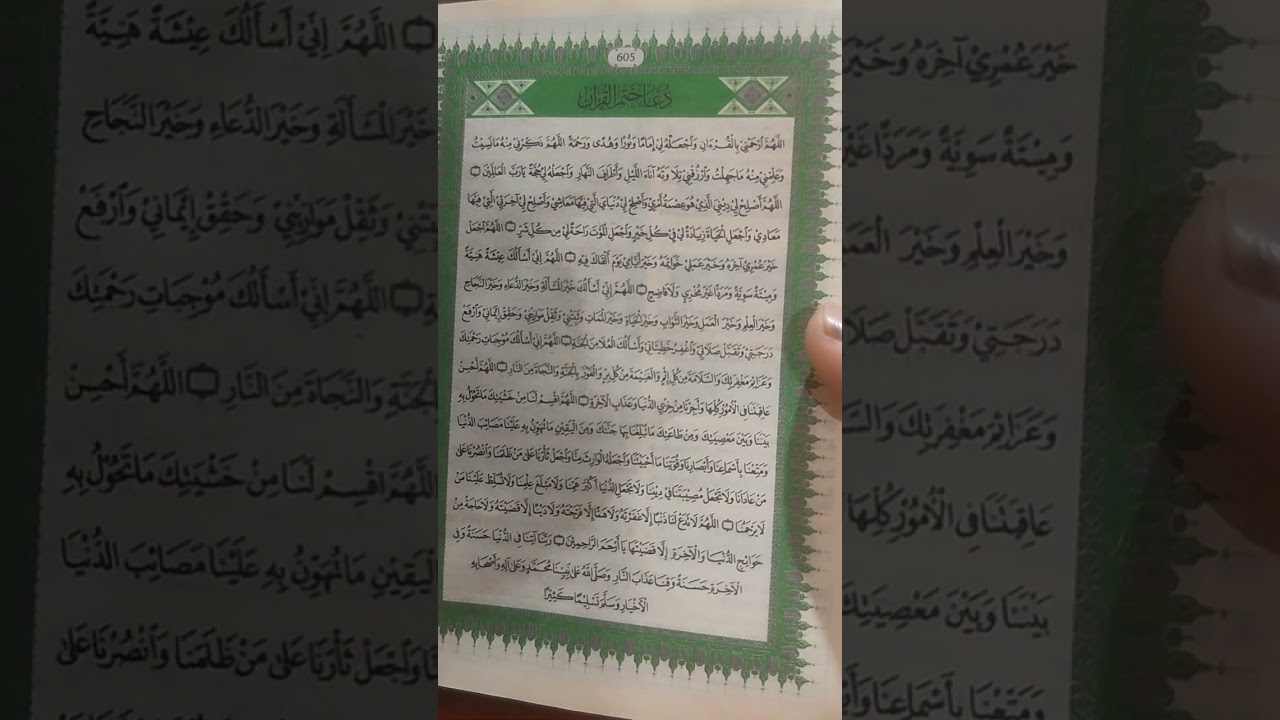 605
دُعَاءُ خَتْمِ الْقُرْآنِ
اللَّهُمَّ ارْحَمْنِي بِالْقُرْءَانِ وَاجْعَلْهُ لِي إِمَامًا وَنُورًا وَهُدًى وَرَحْمَةً اللَّهُمَّ ذَكِّرْنِي مِنْهُ مَا نَسِيتُ
وَعَلِّمْنِي مِنْهُ مَا جَهِلْتُ وَارْزُقْنِي تِلَاوَتَهُ آنَاءَ اللَّيْلِ وَأَطْرَافَ النَّهَارِ وَاجْعَلْهُ لِي حُجَّةً يَا رَبَّ الْعَالَمِينَ
اللَّهُمَّ أَصْلِحْ لِي دِينِي الَّذِي هُوَ عِصْمَةُ أَمْرِي وَأَصْلِحْ لِي دُنْيَايَ الَّتِي فِيهَا مَعَاشِي وَأَصْلِحْ لِي آخِرَتِي الَّتِي فِيهَا
مَعَادِي وَاجْعَلِ الْحَيَاةَ زِيَادَةً لِي فِي كُلِّ خَيْرٍ وَاجْعَلِ الْمَوْتَ رَاحَةً لِي مِنْ كُلِّ شَرٍّ اللَّهُمَّ اجْعَلْ
خَيْرَ عُمْرِي آخِرَهُ وَخَيْرَ عَمَلِي خَوَاتِمَهُ وَخَيْرَ أَيَّامِي يَوْمَ أَلْقَاكَ فِيهِ اللَّهُمَّ إِنِّي أَسْأَلُكَ عِيشَةً هَنِيَّةً
وَمِيتَةً سَوِيَّةً وَمَرَدًّا غَيْرَ مُخْزِي وَلَا فَاضِحٍ اللَّهُمَّ إِنِّي أَسْأَلُكَ خَيْرَ الْمَسْأَلَةِ وَخَيْرَ الدُّعَاءِ وَخَيْرَ النَّجَاحِ
وَخَيْرَ الْعِلْمِ وَخَيْرَ الْعَمَلِ وَخَيْرَ الثَّوَابِ وَخَيْرَ الْحَيَاةِ وَخَيْرَ الْمَمَاتِ وَثَبِّتْنِي وَثَقِّلْ مَوَازِينِي وَحَقِّقْ إِيمَانِي وَارْفَعْ
دَرَجَتِي وَتَقَبَّلْ صَلَاتِي وَاغْفِرْ خَطِيئَاتِي وَأَسْأَلُكَ الْعُلَا مِنَ الْجَنَّةِ اللَّهُمَّ إِنِّي أَسْأَلُكَ مُوجِبَاتِ رَحْمَتِكَ
وَعَزَائِمَ مَغْفِرَتِكَ وَالسَّلَامَةَ مِنْ كُلِّ إِثْمٍ وَالْغَنِيمَةَ مِنْ كُلِّ بِرٍّ وَالْفَوْزَ بِالْجَنَّةِ وَالنَّجَاةَ مِنَ النَّارِ اللَّهُمَّ أَحْسِنْ
عَاقِبَتَنَا فِي الْأُمُورِ كُلِّهَا وَأَجِرْنَا مِنْ خِزْيِ الدُّنْيَا وَعَذَابِ الْآخِرَةِ اللَّهُمَّ اقْسِمْ لَنَا مِنْ خَشْيَتِكَ مَا تَحُولُ بِهِ
بَيْنَنَا وَبَيْنَ مَعْصِيَتِكَ وَمِنْ طَاعَتِكَ مَا تُبَلِّغُنَا بِهَا جَنَّتَكَ وَمِنَ الْيَقِينِ مَا تُهَوِّنُ بِهِ عَلَيْنَا مَصَائِبَ الدُّنْيَا
وَمَتِّعْنَا بِأَسْمَاعِنَا وَأَبْصَارِنَا وَقُوَّتِنَا مَا أَحْيَيْتَنَا وَاجْعَلْهُ الْوَارِثَ مِنَّا وَاجْعَلْ ثَأْرَنَا عَلَى مَنْ ظَلَمَنَا وَانْصُرْنَا عَلَى
مَنْ عَادَانَا وَلَا تَجْعَلْ مُصِيبَتَنَا فِي دِينِنَا وَلَا تَجْعَلِ الدُّنْيَا أَكْبَرَ هَمِّنَا وَلَا مَبْلَغَ عِلْمِنَا وَلَا تُسَلِّطْ عَلَيْنَا مَنْ
لَا يَرْحَمُنَا اللَّهُمَّ لَا تَدَعْ لَنَا ذَنْبًا إِلَّا غَفَرْتَهُ وَلَا هَمًّا إِلَّا فَرَّجْتَهُ وَلَا دَيْنًا إِلَّا قَضَيْتَهُ وَلَا حَاجَةً مِنْ
حَوَائِجِ الدُّنْيَا وَالْآخِرَةِ إِلَّا قَضَيْتَهَا يَا أَرْحَمَ الرَّاحِمِينَ رَبَّنَا آتِنَا فِي الدُّنْيَا حَسَنَةً وَفِي
الْآخِرَةِ حَسَنَةً وَقِنَا عَذَابَ النَّارِ وَصَلَّى اللَّهُ عَلَى نَبِيِّنَا مُحَمَّدٍ وَعَلَى آلِهِ وَأَصْحَابِهِ
الْأَخْيَارِ وَسَلَّمَ تَسْلِيمًا كَثِيرًا